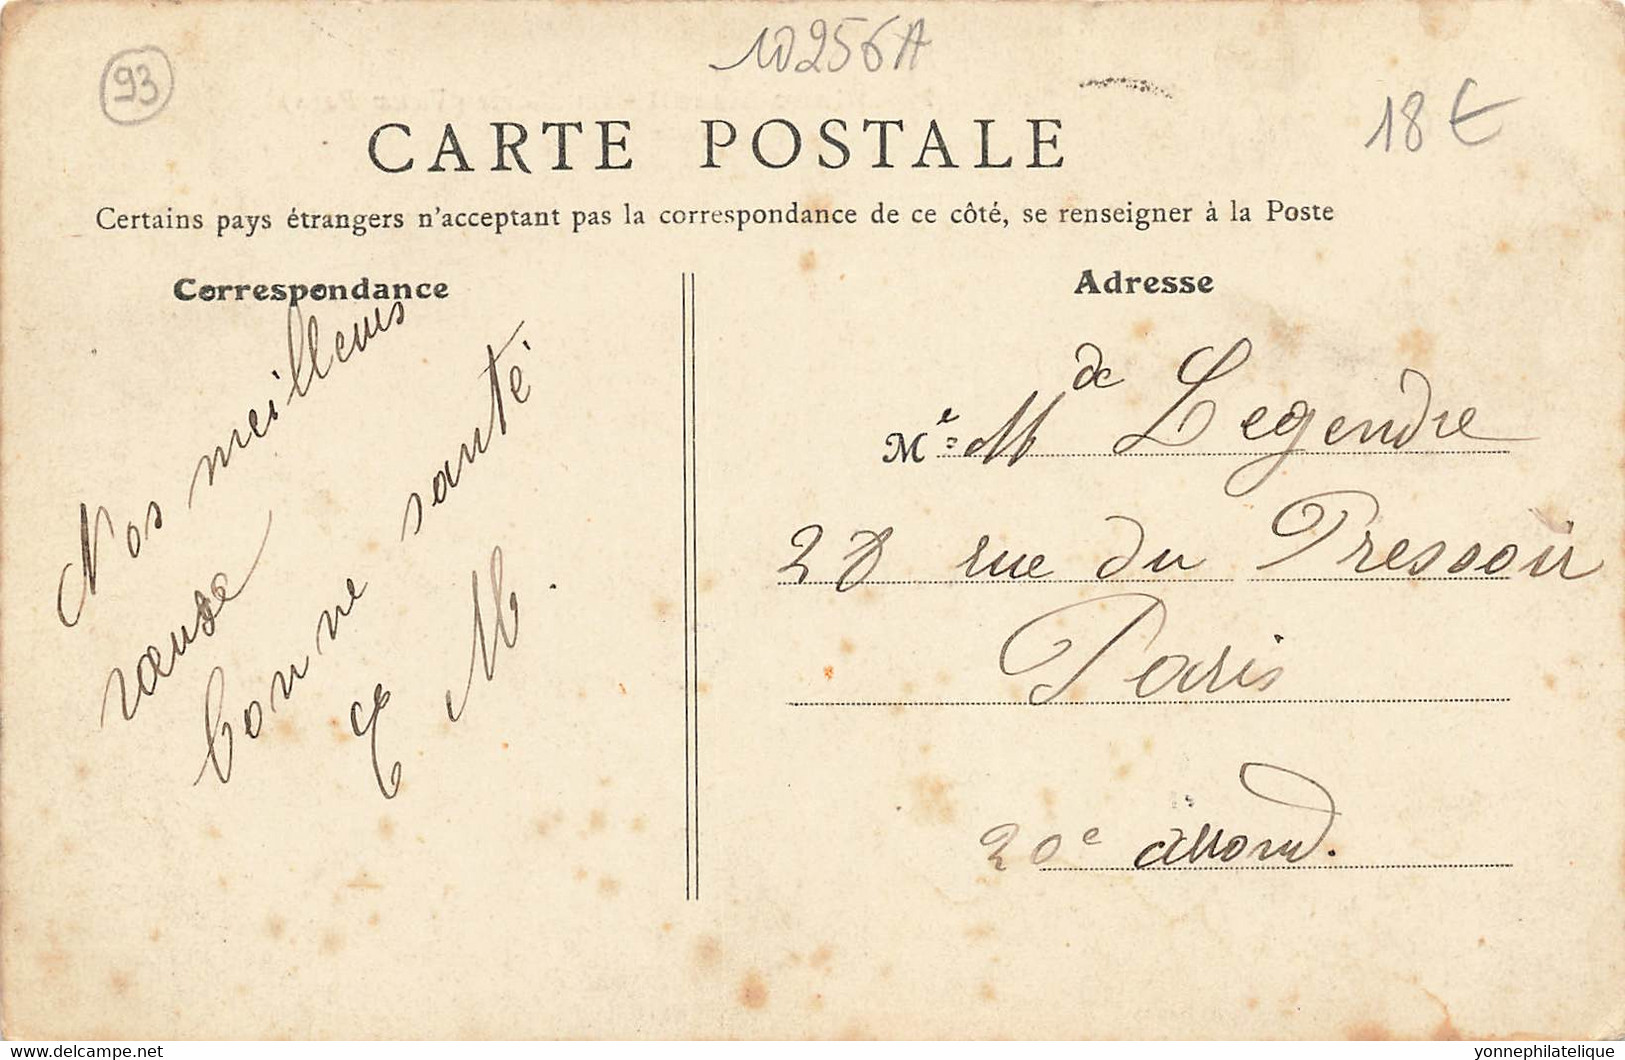 93
10256A
18 €
CARTE POSTALE
Certains pays étrangers n'acceptant pas la correspondance de ce côté, se renseigner à la Poste
Correspondance
Nos meilleurs
vœux de
bonne santé
M.
Adresse
M e = Mde Legendre
28 rue du Pressoir
Paris
20e arrond.
delcampe.net
yonnephilatelique